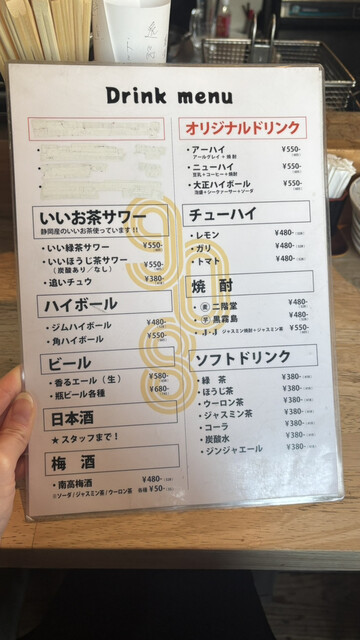 Drink menu
いいお茶サワー
静岡産のいいお茶使っています!!
・いい緑茶サワー ¥550-
・いいほうじ茶サワー ¥550-
(炭酸あり/なし)
・追いチュウ ¥380-
ハイボール
・ジムハイボール ¥480-
・角ハイボール ¥550-
ビール
・香るエール(生) ¥580-
・瓶ビール各種 ¥680-
日本酒
★スタッフまで!
梅酒
・南高梅酒 ¥480-
※ソーダ/ジャスミン茶/ウーロン茶 各種 ¥50-
オリジナルドリンク
・アーハイ ¥550-
アールグレイ+焼酎
・ニューハイ ¥550-
豆乳+コーヒー+焼酎
・大正ハイボール ¥550-
泡盛+シークァーサー+ソーダ
チューハイ
・レモン ¥480-
・ガリ ¥480-
・トマト ¥480-
焼酎
・麦 二階堂 ¥480-
・芋 黒霧島 ¥480-
・J・J ジャスミン焼酎+ジャスミン茶 ¥550-
ソフトドリンク
・緑茶 ¥380-
・ほうじ茶 ¥380-
・ウーロン茶 ¥380-
・ジャスミン茶 ¥380-
・コーラ ¥380-
・炭酸水 ¥380-
・ジンジャエール ¥380-